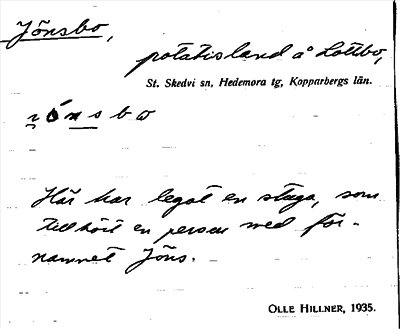 Jönsbo,
potatisland å Lottbo,
St. Skedvi sn, Hedemora tg, Kopparbergs län.
Här har legat en stuga, som
tillhört en person med för-
namnet Jöns.
OLLE HILLNER, 1935.